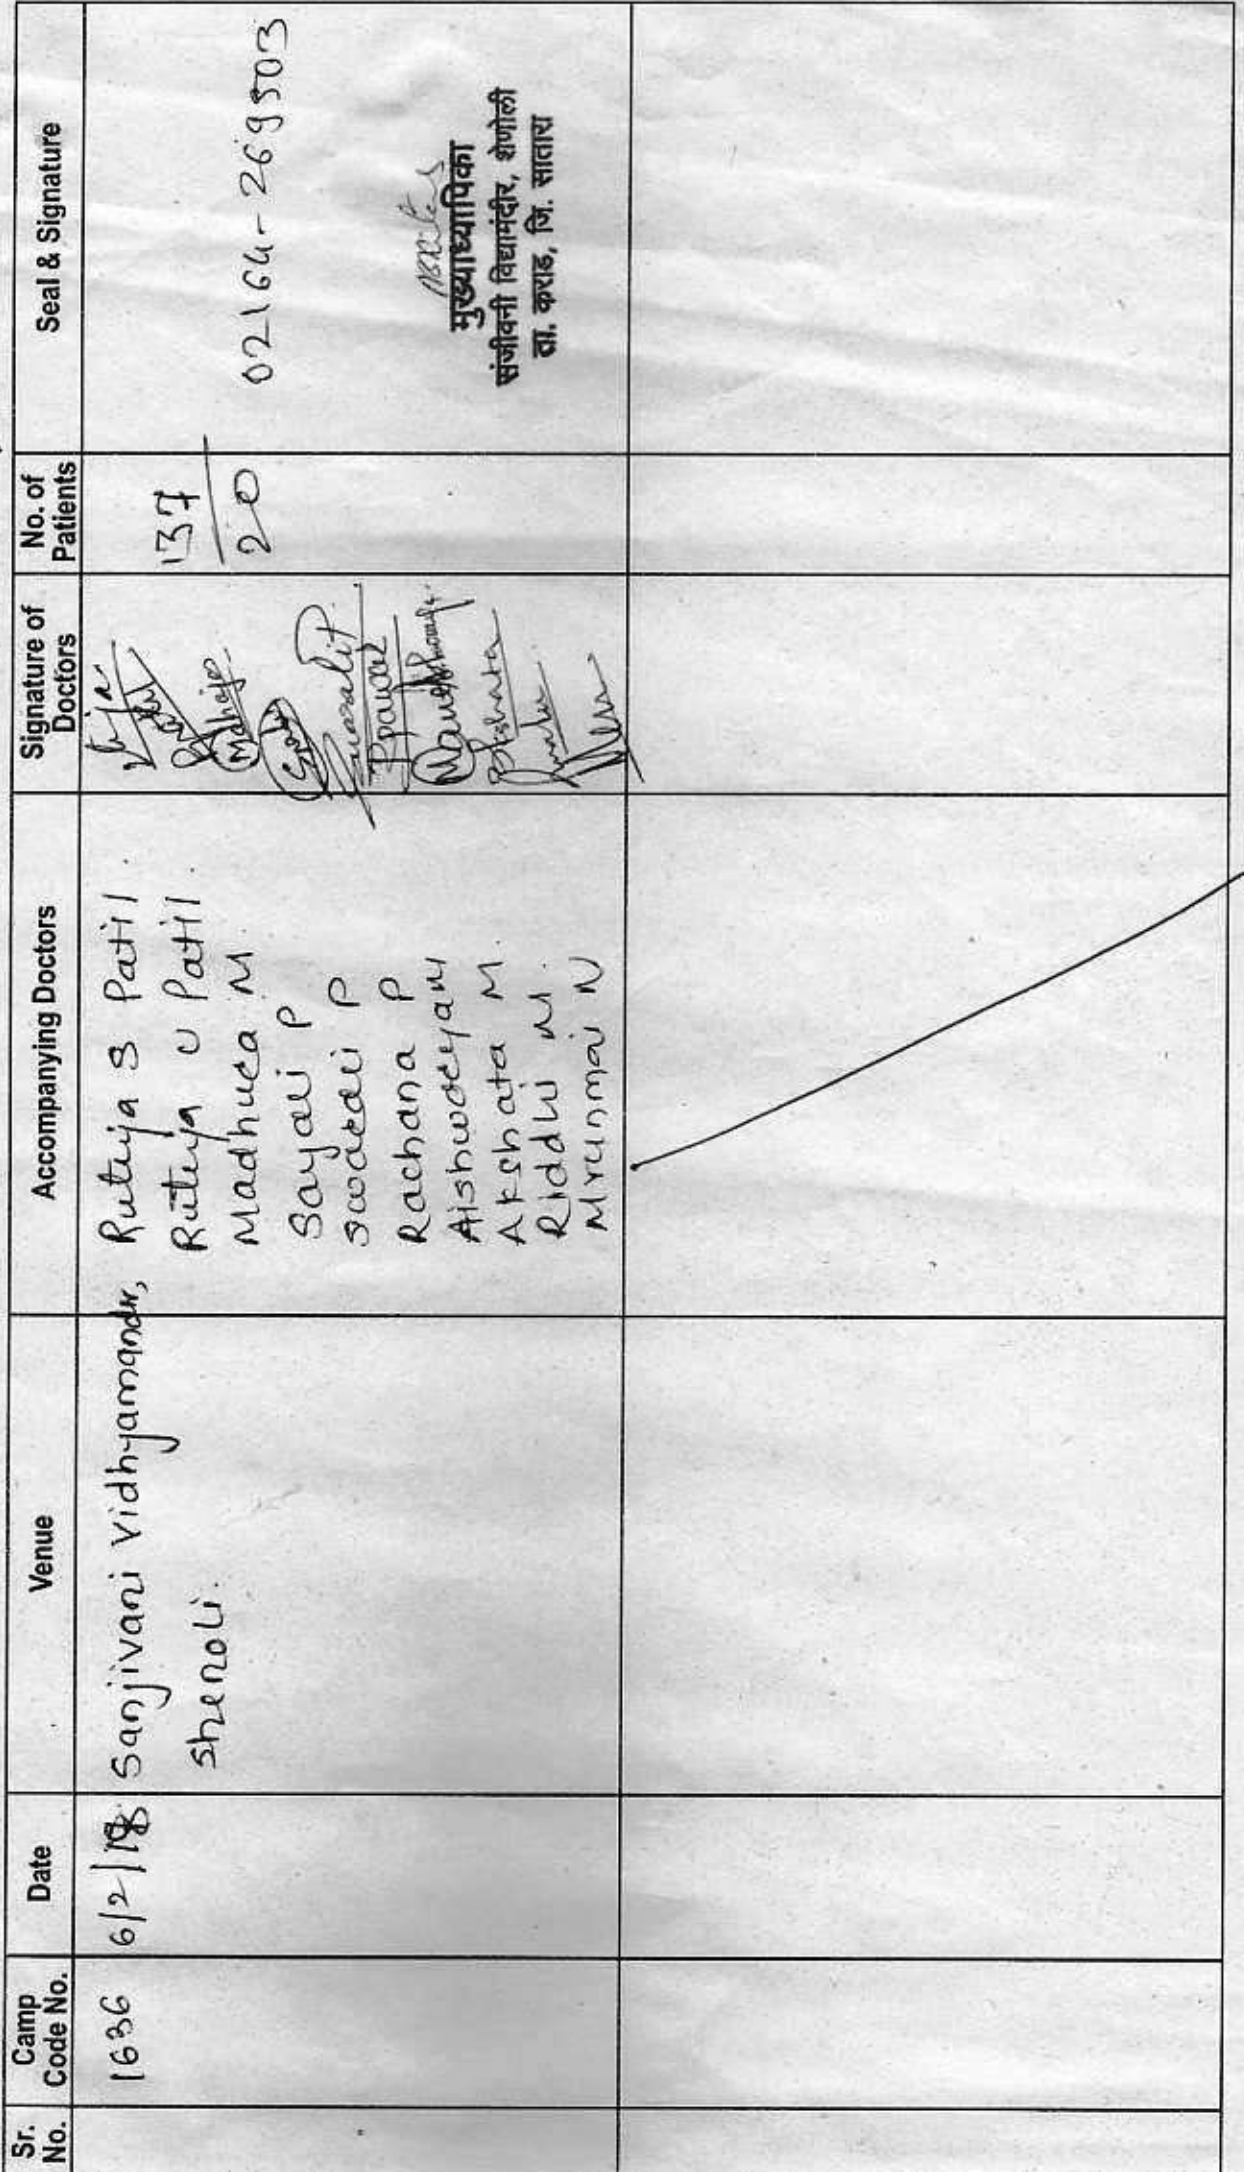 Sr. No.
Camp Code No.
Date
Venue
Accompanying Doctors
Signature of Doctors
No. of Patients
Seal & Signature
1636
6/2/18
Sanjivani Vidhyamandir,
Shenoli.
Rutuja S Patil.
Rutuja U Patil
Madhura M
Sayali P
Swarali P
Rachana P
Aishwarya M
Akshata M.
Riddhi M.
Mrunmai N
Mahajan
Swarali P.
Rpawar
Akshata
137
20
02164-269503
मुख्याध्यापिका
संजीवनी विद्यामंदीर, शेणोली
ता. कराड, जि. सातारा